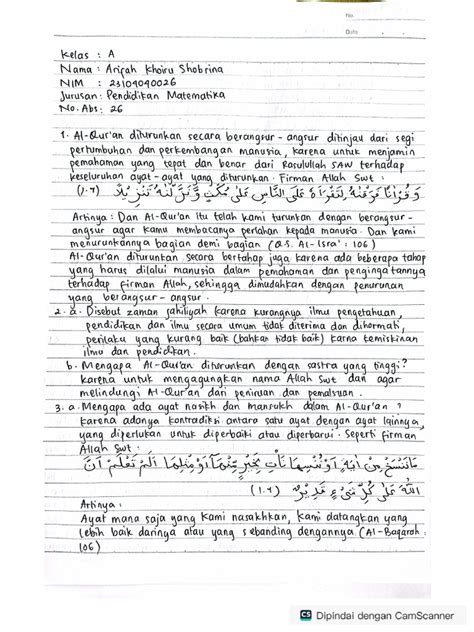 No.
Date
Kelas : A
Nama : Arifah Khoiru Shobrina
NIM : 23104040026
Jurusan : Pendidikan Matematika
No. Abs : 26
1. Al-Qur'an diturunkan secara berangsur - angsur ditinjau dari segi
pertumbuhan dan perkembangan manusia, karena untuk menjamin
pemahaman yang tepat dan benar dari Rasulullah SAW terhadap
keseluruhan ayat - ayat yang diturunkan. Firman Allah Swt :
وَقُرْاٰنًا فَرَقْنٰهُ لِتَقْرَاَهٗ عَلَى النَّاسِ عَلٰى مُكْثٍ وَّنَزَّلْنٰهُ تَنْزِيْلًا (١٠٦)
Artinya : Dan Al-Qur'an itu telah kami turunkan dengan berangsur -
angsur agar kamu membacanya perlahan kepada manusia. Dan kami
menurunkannya bagian demi bagian (Q.S. Al-Isra' : 106)
Al-Qur'an diturunkan secara bertahap juga karena ada beberapa tahap
yang harus dilalui manusia dalam pemahaman dan pengingatannya
terhadap firman Allah, sehingga dimudahkan dengan penurunan
yang berangsur - angsur.
2. a. Disebut zaman jahiliyah karena kurangnya ilmu pengetahuan,
pendidikan dan ilmu secara umum tidak diterima dan dihormati,
perilaku yang kurang baik (bahkan tidak baik) karna kemiskinan
ilmu dan pendidikan.
b. Mengapa Al-Qur'an diturunkan dengan sastra yang tinggi?
karena untuk mengagungkan nama Allah Swt dan agar
melindungi Al-Qur'an dari peniruan dan pemalsuan.
3. a. Mengapa ada ayat nasikh dan mansukh dalam Al-Qur'an ?
karena adanya kontradiksi antara satu ayat dengan ayat lainnya,
yang diperlukan untuk diperbaiki atau diperbarui. Seperti firman
Allah Swt :
مَا نَنْسَخْ مِنْ اٰيَةٍ اَوْ نُنْسِهَا نَأْتِ بِخَيْرٍ مِّنْهَآ اَوْ مِثْلِهَا اَلَمْ تَعْلَمْ اَنَّ
اللّٰهَ عَلٰى كُلِّ شَيْءٍ قَدِيْرٌ (١٠٦)
Artinya :
Ayat mana saja yang kami nasakhkan, kami datangkan yang
lebih baik darinya atau yang sebanding dengannya. (Al-Baqarah :
106)
CS Dipindai dengan CamScanner